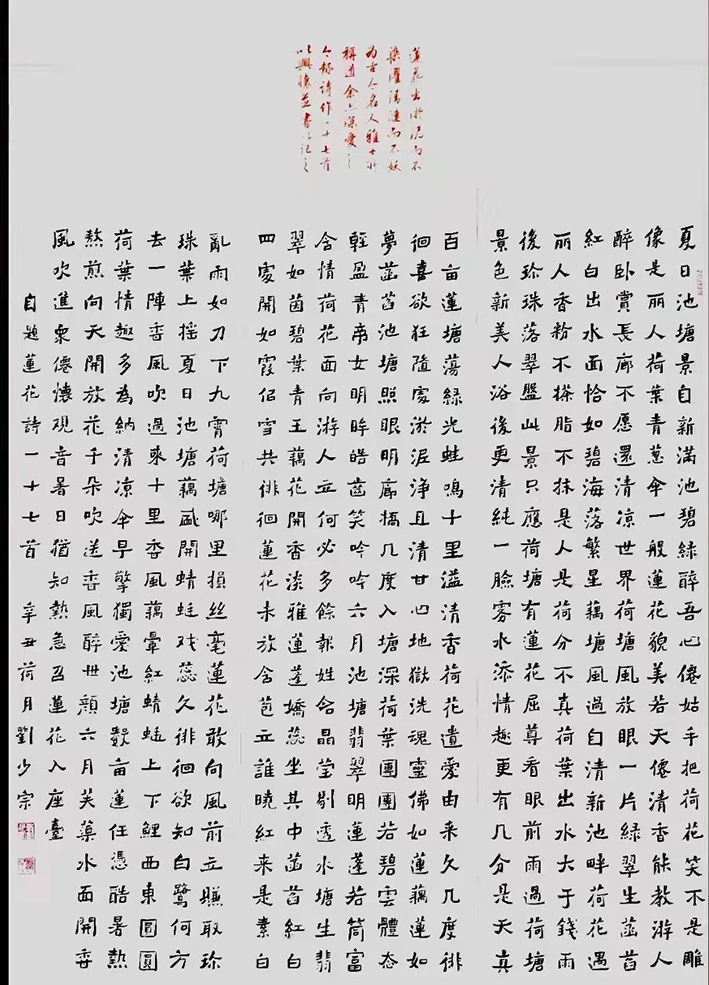 蓮花出淤泥而不
染濯清漣而不妖
为古今名人雅士所
稱道余亦深愛之
今録詩作一十七首
以興懷並書以記之
夏日池塘景自新滿池碧綠醉吾心僊姑手把荷花笑不是雕
像是丽人荷葉青蔥傘一般蓮花貌美若天僊清香能教游人
醉卧賞長廊不愿還清凉世界荷塘風放眼一片綠翠生菡萏
紅白出水面恰如碧海落繁星藕塘風過自清新池畔荷花遇
丽人香粉不搽脂不抹是人是荷分不真荷葉出水大于錢雨
後珍珠落翠盤此景只應荷塘有蓮花屈尊看眼前雨過荷塘
景色新美人浴後更清純一臉雾水添情趣更有几分是天真
百亩蓮塘蕩綠光蛙鳴十里溢清香荷花遺愛由来久几度徘
徊喜欲狂随處淤泥净且清甘心地獄洗魂靈佛如蓮藕蓮如
夢菡萏池塘照眼明廊橋几度入塘深荷葉團團若碧雲體态
輕盈青帝女明眸皓齒笑吟吟六月池塘翡翠明蓮蓬若筒富
含情荷花面向游人立何必多餘報姓名晶莹剔透水塘生翡
翠如茵碧葉青玉藕花開香淡雅蓮蓬嬌蕊坐其中菡萏紅白
四處開如霞似雪共徘徊蓮花未放含苞立誰曉紅来是素白
亂雨如刀下九霄荷塘哪里損丝毫蓮花敢向風前立賺取珍
珠葉上摇夏日池塘藕盛開蜻蜓戏蕊久徘徊欲知白鹭何方
去一陣香風吹過來十里香風藕暈紅蜻蜓上下鯉西東圓圓
荷葉情趣多為納清凉傘早擎獨愛池塘數亩蓮任憑酷暑熱
熬煎向天開放花千朵吹送香風醉世顏六月芙蕖水面開香
風吹進衆僊懷观音暑日猶知熱急召蓮花入座臺
自題蓮花詩一十七首 辛丑荷月劉少宗